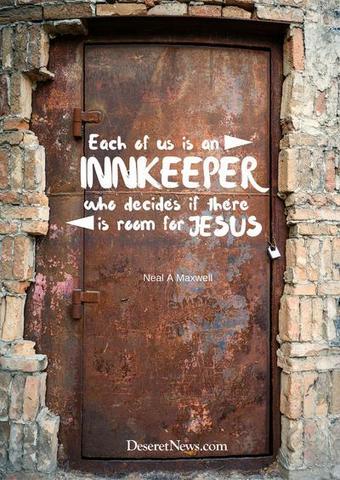 Each of us is an
INNKEEPER
who decides if there
is room for JESUS
Neal A Maxwell
DeseretNews.com